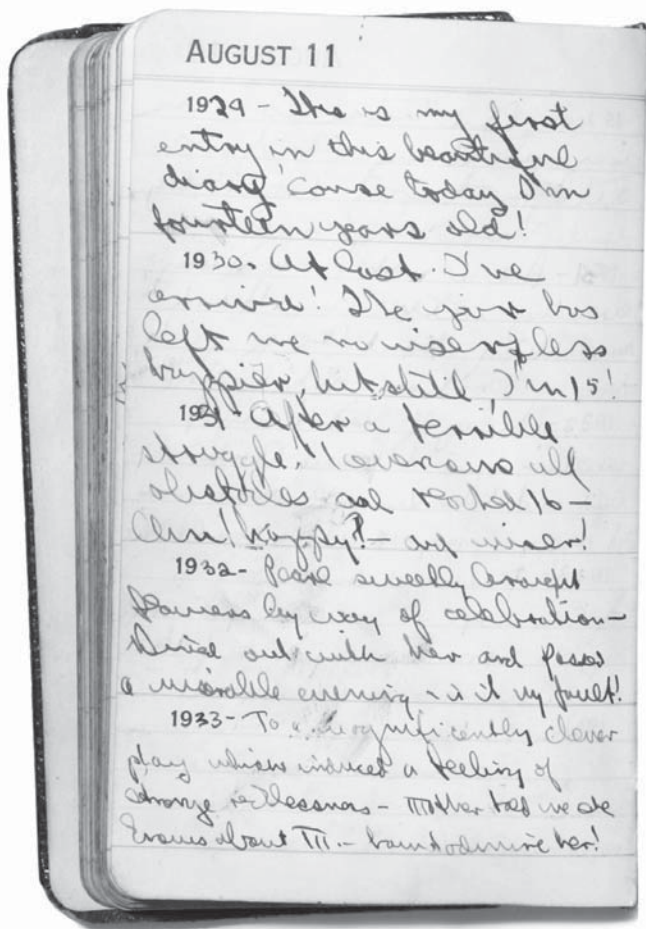 AUGUST 11
1929 - This is my first
entry in this beautiful
diary 'cause today I'm
fourteen years old!
1930. At last I've
arrived! The year has
left me no wiser, less
happier, but still, I'm 15!
1931 After a terrible
struggle, I overcame all
obstacles and reached 16 -
Am! happy! - and wiser!
1932 - Pearl sweetly brought
flowers by way of celebration -
Dined out with her and passed
a miserable evening - is it my fault!
1933 - To a magnificently clever
play which induced a feeling of
strange restlessness - Mother told me she
knows about M. - had to admire her!